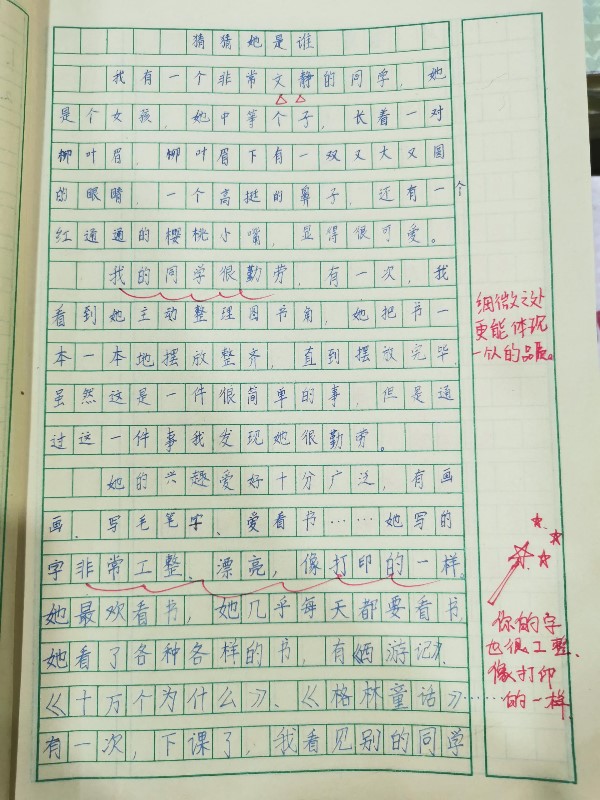 猜猜她是谁
我有一个非常文静的同学，她
是个女孩，她中等个子，长着一对
柳叶眉，柳叶眉下有一双又大又圆
的眼睛，一个高挺的鼻子，还有一个
红通通的樱桃小嘴，显得很可爱。
我的同学很勤劳，有一次，我
看到她主动整理图书角，她把书一
本一本地摆放整齐，直到摆放完毕。
虽然这是一件很简单的事，但是通
过这一件事我发现她很勤劳。
细微之处
更能体现
一个人的品质。
她的兴趣爱好十分广泛，有画
画、写毛笔字、爱看书……她写的
字非常工整、漂亮，像打印的一样。
她最欢看书，她几乎每天都要看书，
她看了各种各样的书，有《西游记》、
《十万个为什么》、《格林童话》……
有一次，下课了，我看见别的同学
你的字
也很工整、
像打印
的一样